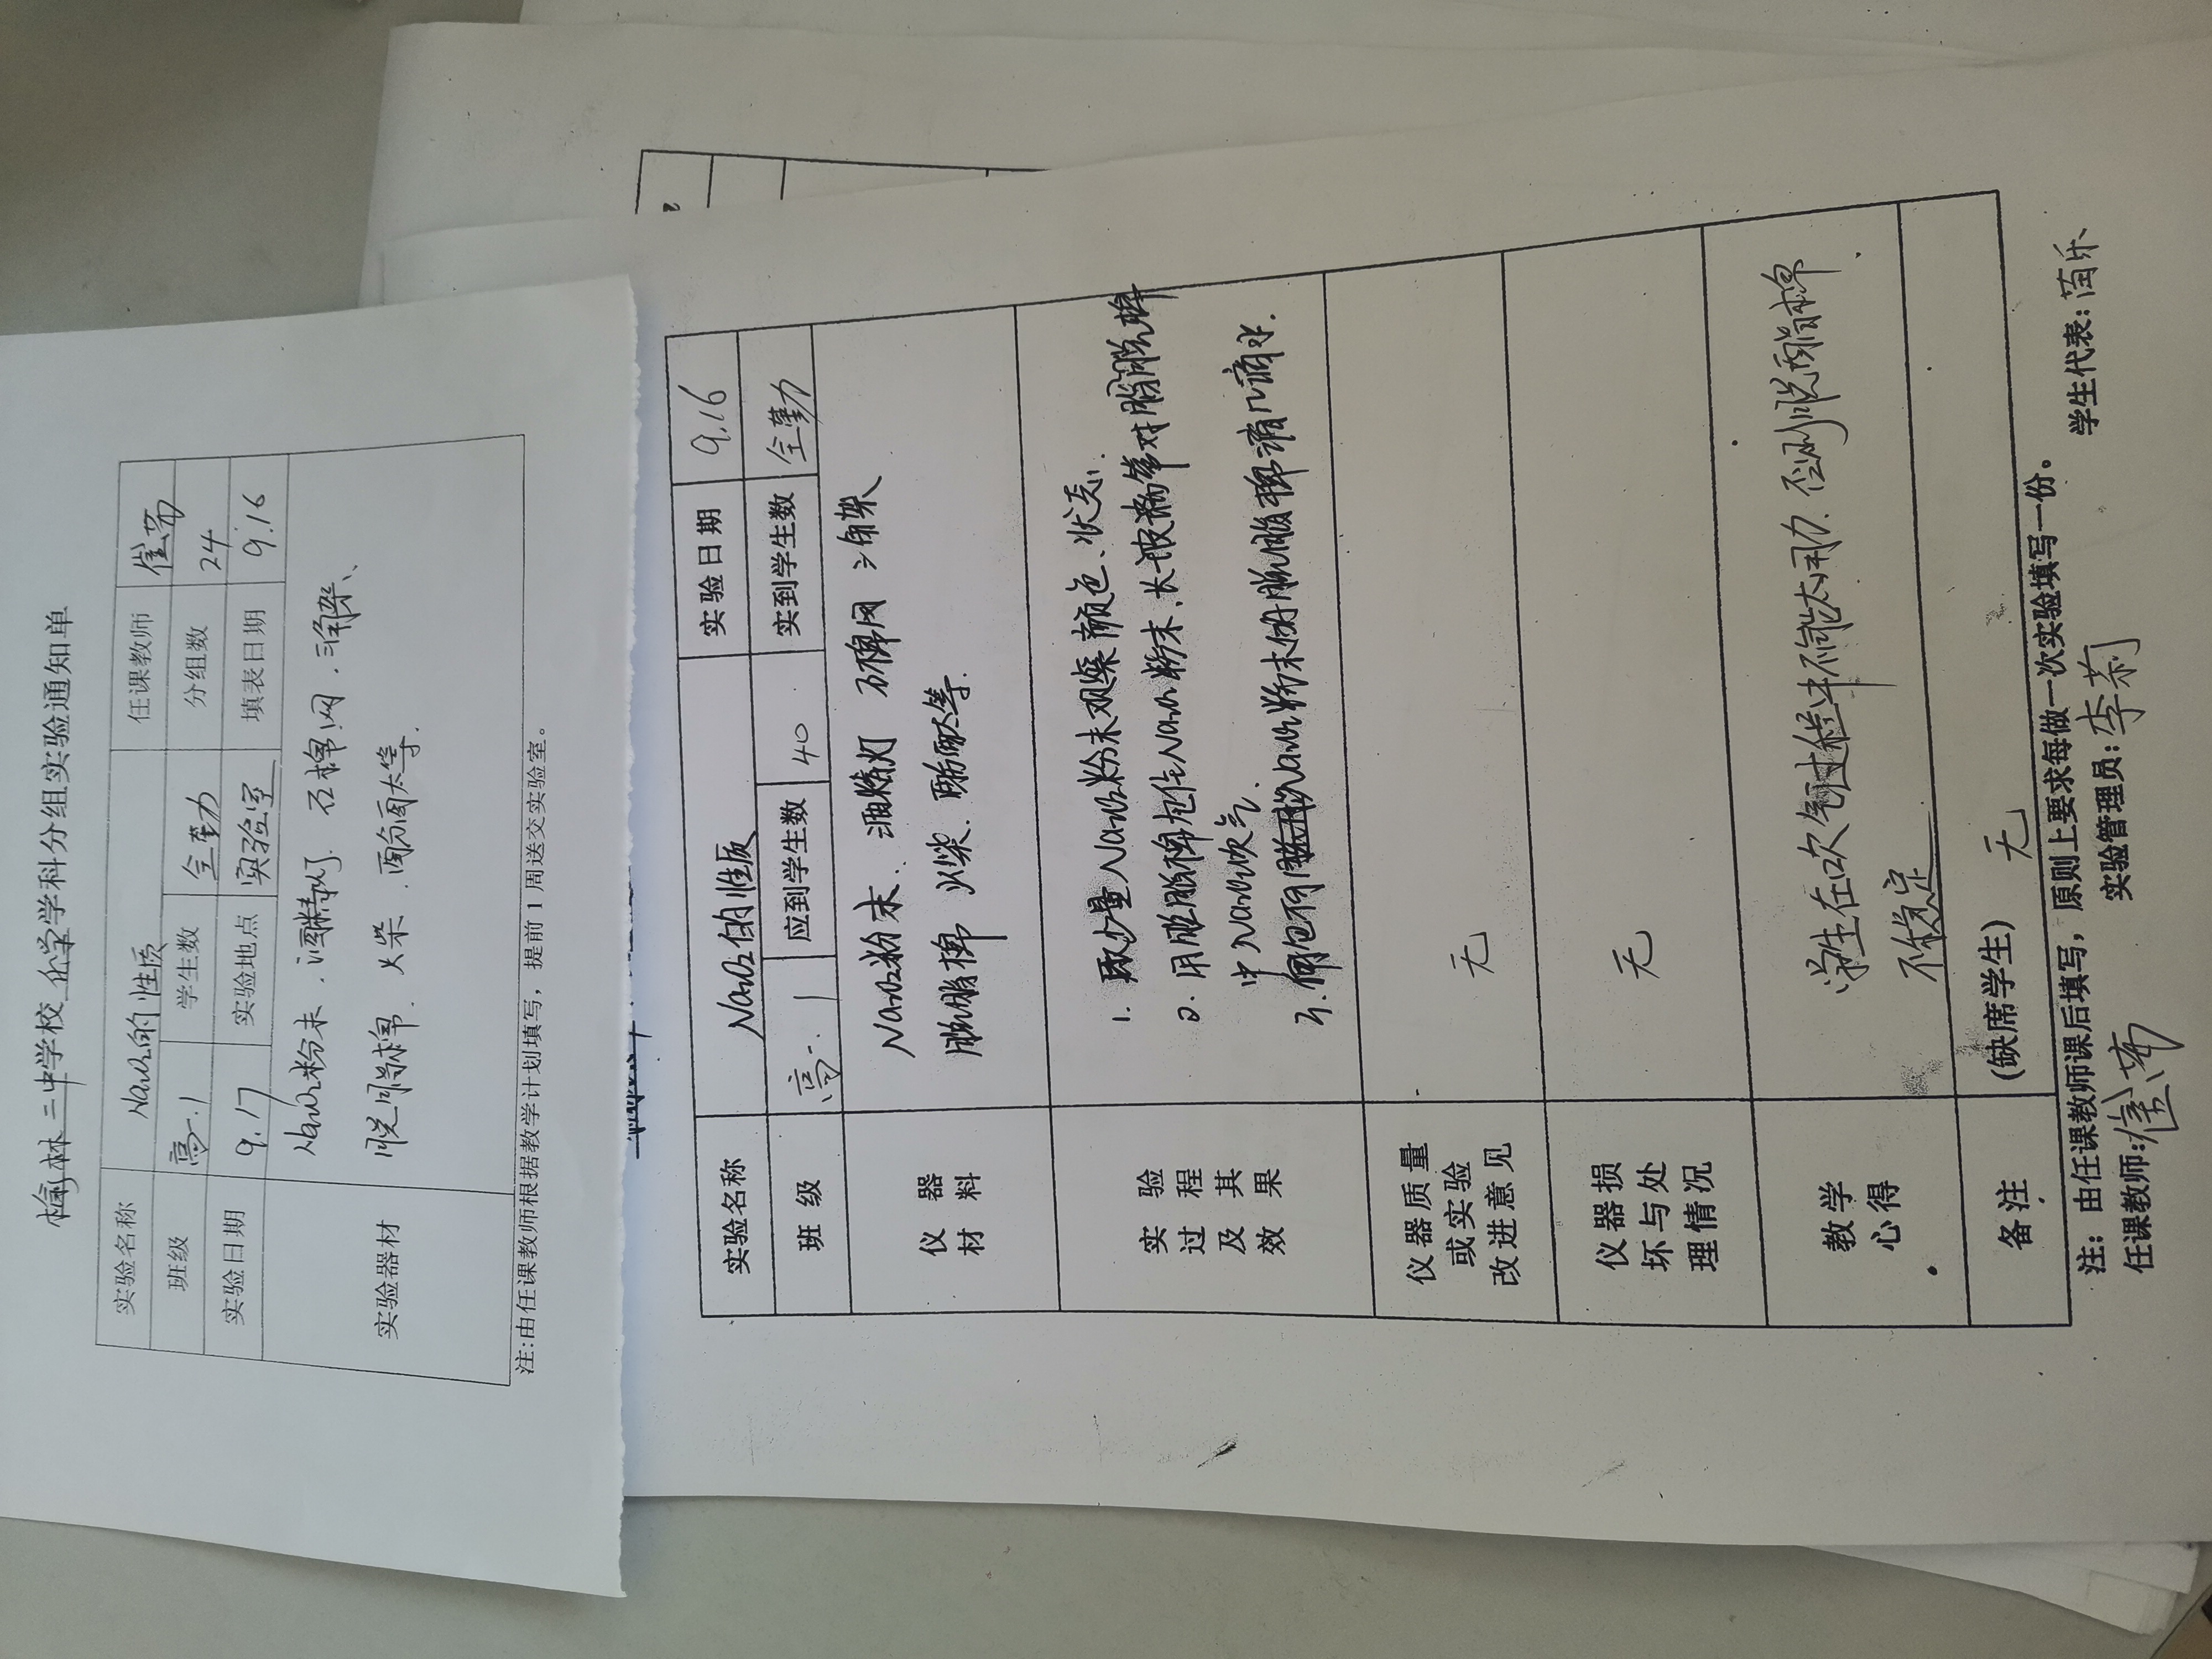 榆林三中学校化学学科分组实验通知单
实验名称 Na2O2的性质 任课教师 崔芾
班级 高一.1 学生数 全勤 分组数 24
实验日期 9.17 实验地点 实验室 填表日期 9.16
实验器材 Na2O2粉末、酒精灯、石棉网、三角架、
脱脂棉、火柴、酚酞等.
注:由任课教师根据教学计划填写，提前1周送交实验室。
实验名称 Na2O2的性质 实验日期 9.16
班 级 高一.1 应到学生数 40 实到学生数 全勤
仪 器
材 料
Na2O2粉末、酒精灯 石棉网 三角架
脱脂棉 火柴、酚酞等.
实 验
过 程
及 其
效 果
1. 取少量Na2O2粉末观察颜色、状态.
2. 用脱脂棉包住Na2O2粉末、长玻璃管对脂脱棉
中Na2O2吹气.
3. 向包有Na2O2粉末的脱脂棉滴几滴水.
仪器质量
或实验
改进意见
无
仪器损
坏与处
理情况
无
教学
心得
学生在吹气过程中不能太用力.否则脱脂棉
不稳定
备注 (缺席学生) 无
注：由任课教师课后填写，原则上要求每做一次实验填写一份。
任课教师: 崔芾 实验管理员: 李莉 学生代表: 苗乐